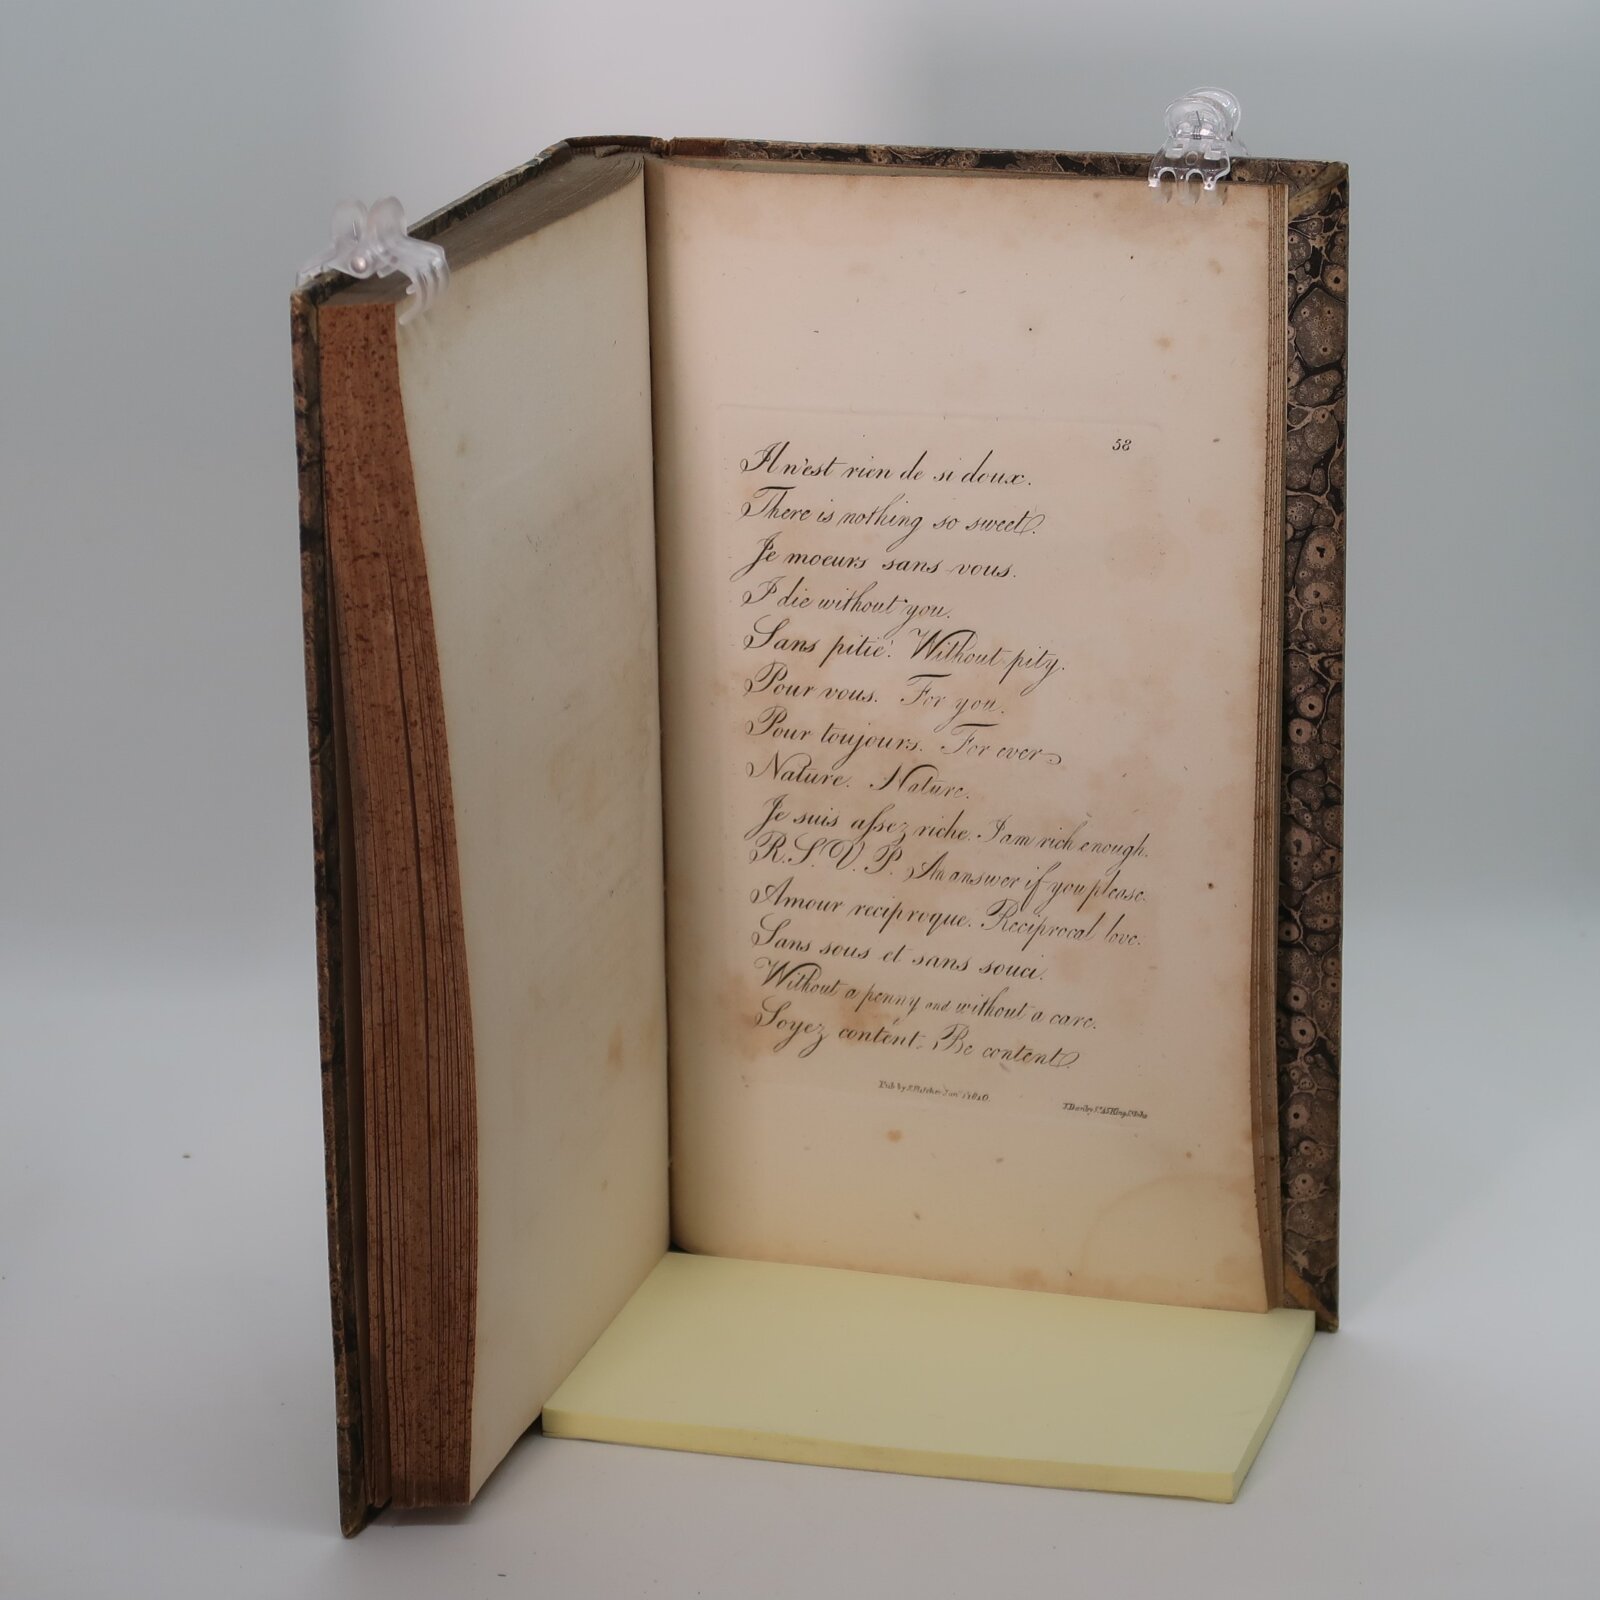 58
Il n'est rien de si doux.
There is nothing so sweet.
Je moeurs sans vous.
I die without you.
Sans pitié. Without pity.
Pour vous. For you.
Pour toujours. For ever
Nature. Nature.
Je suis aſsez riche. I am rich enough.
R.S.V.P. An answer if you please.
Amour reciproque. Reciprocal love.
Sans sous et sans souci.
Without a penny and without a care.
Soyez content. Be content
Pub by